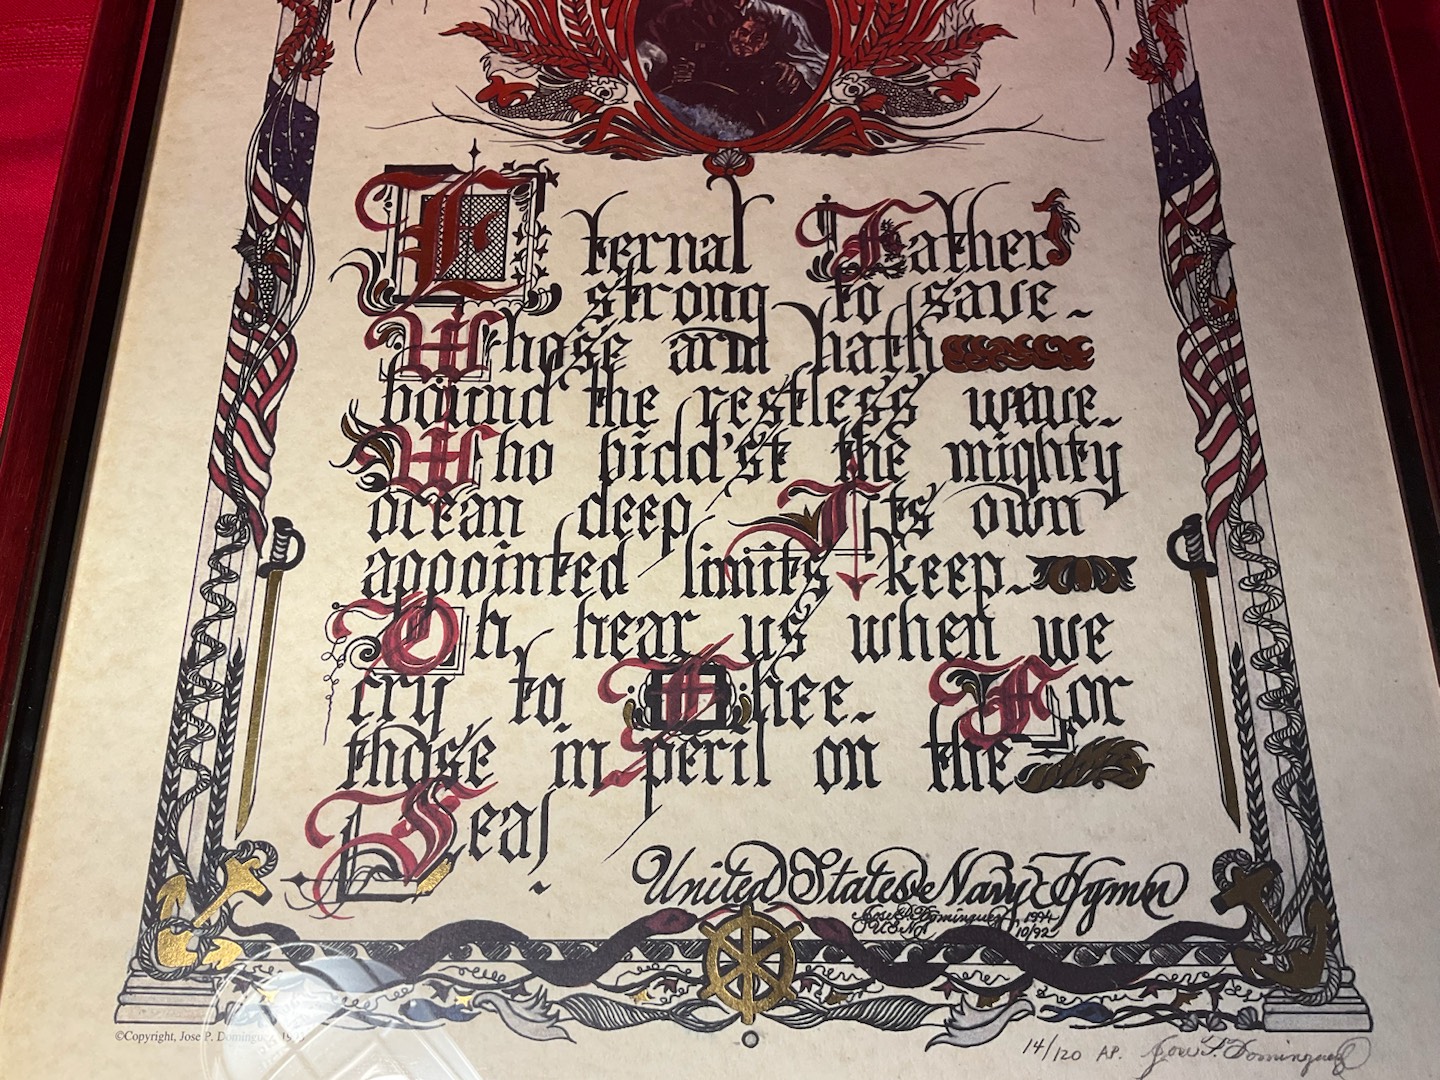 Eternal Father
strong to save~
Whose arm hath
bound the restless wave~
Who bidd'st the mighty
ocean deep, Its own
appointed limits keep~
Oh, hear us when we
cry to Thee~ For
those in peril on the
Sea!
United States Navy Hymn
Jose P. Dominguez, 1994
USN 10/92
©Copyright, Jose P. Dominguez,
14/120 AP. Jose P. Dominguez